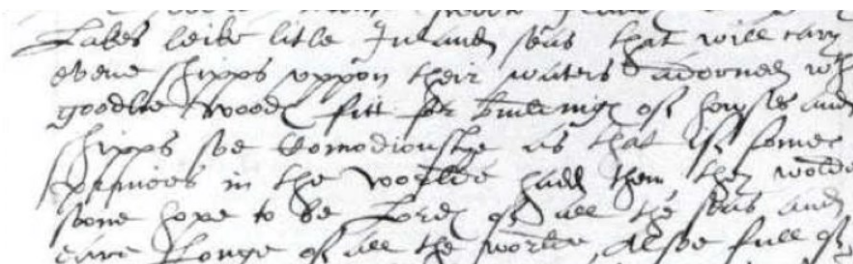 Lakes leike litle Inland seas that will cary
evene shipps uppon their waters adorned wth
goodlie woodes fitt for buildinge of howses and
shipps soe comodiouslye as that if some
princes in the worlde hadd them, they wolde
soone hope to be Lordes of all the seas and
ere longe of all the worlde, alsoe full of